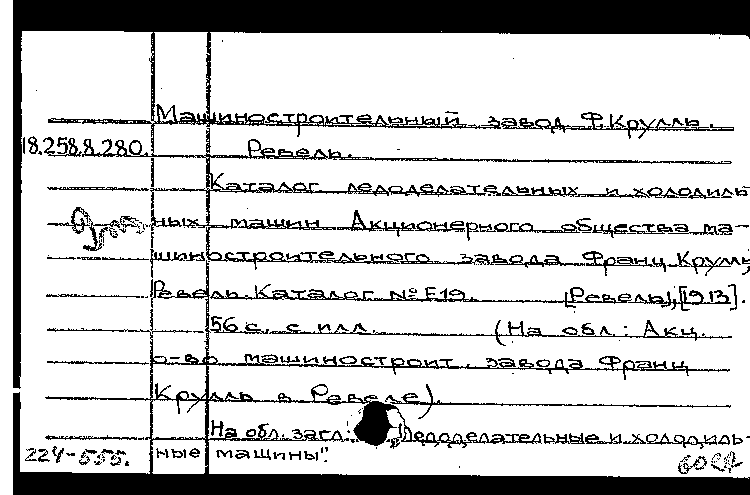 Машиностроительный завод Ф.Крулль.
18.258.8.280. Ревель.
Каталог ледоделательных и холодиль-
ных машин Акционерного общества ма-
шиностроительного завода Франц Крулль,
Ревель. Каталог № Е19. [Ревель], [1913].
56 с. с илл. (На обл.: Акц.
о-во машиностроит. завода Франц
Крулль в Ревеле).
На обл. загл.: „Ледоделательные и холодиль-
224-555. ные машины".